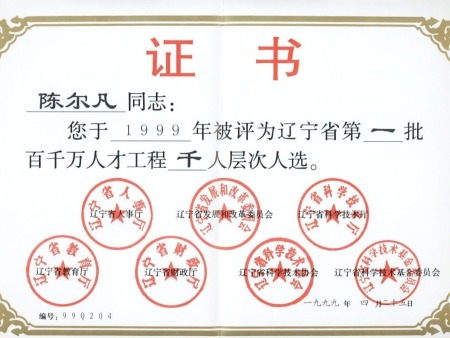 证书
陈尔凡同志：
您于1999年被评为辽宁省第一批
百千万人才工程千人层次人选。
辽宁省人事厅 辽宁省发展和改革委员会 辽宁省科学技术厅
辽宁省教育厅 辽宁省财政厅 辽宁省科学技术协会 辽宁省科学技术基金委员会
一九九九年四月二十五日
编号：99Q204